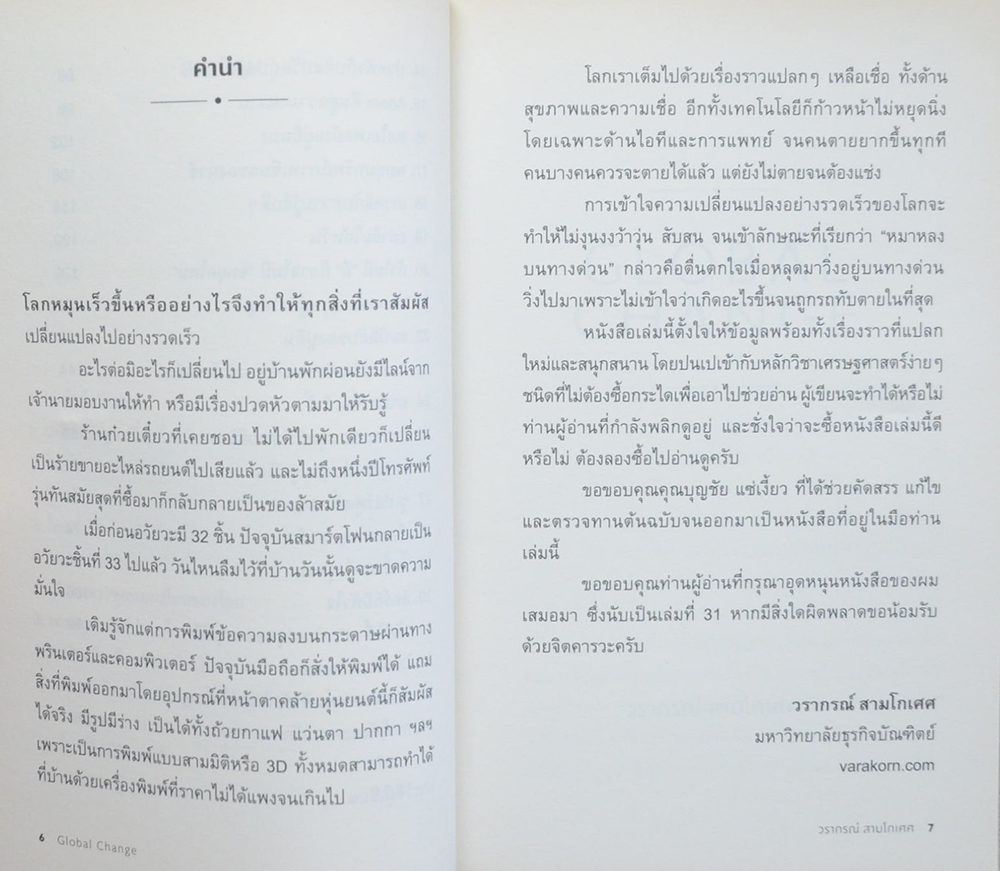 คำนำ
โลกหมุนเร็วขึ้นหรืออย่างไรจึงทำให้ทุกสิ่งที่เราสัมผัส
เปลี่ยนแปลงไปอย่างรวดเร็ว
อะไรต่อมิอะไรก็เปลี่ยนไป อยู่บ้านพักผ่อนยังมีไลน์จาก
เจ้านายมอบงานให้ทำ หรือมีเรื่องปวดหัวตามมาให้รับรู้
ร้านก๋วยเตี๋ยวที่เคยชอบ ไม่ได้ไปพักเดียวก็เปลี่ยน
เป็นร้ายขายอะไหล่รถยนต์ไปเสียแล้ว และไม่ถึงหนึ่งปีโทรศัพท์
รุ่นทันสมัยสุดที่ซื้อมาก็กลับกลายเป็นของล้าสมัย
เมื่อก่อนอวัยวะมี 32 ชิ้น ปัจจุบันสมาร์ตโฟนกลายเป็น
อวัยวะชิ้นที่ 33 ไปแล้ว วันไหนลืมไว้ที่บ้านวันนั้นดูจะขาดความ
มั่นใจ
เดิมรู้จักแต่การพิมพ์ข้อความลงบนกระดาษผ่านทาง
พรินเตอร์และคอมพิวเตอร์ ปัจจุบันมือถือก็สั่งให้พิมพ์ได้ แถม
สิ่งที่พิมพ์ออกมาโดยอุปกรณ์ที่หน้าตาคล้ายหุ่นยนต์นี้ก็สัมผัส
ได้จริง มีรูปมีร่าง เป็นได้ทั้งถ้วยกาแฟ แว่นตา ปากกา ฯลฯ
เพราะเป็นการพิมพ์แบบสามมิติหรือ 3D ทั้งหมดสามารถทำได้
ที่บ้านด้วยเครื่องพิมพ์ที่ราคาไม่ได้แพงจนเกินไป
6 Global Change
โลกเราเต็มไปด้วยเรื่องราวแปลกๆ เหลือเชื่อ ทั้งด้าน
สุขภาพและความเชื่อ อีกทั้งเทคโนโลยีก็ก้าวหน้าไม่หยุดนิ่ง
โดยเฉพาะด้านไอทีและการแพทย์ จนคนตายยากขึ้นทุกที
คนบางคนควรจะตายได้แล้ว แต่ยังไม่ตายจนต้องแช่ง
การเข้าใจความเปลี่ยนแปลงอย่างรวดเร็วของโลกจะ
ทำให้ไม่งุนงงว้าวุ่น สับสน จนเข้าลักษณะที่เรียกว่า “หมาหลง
บนทางด่วน” กล่าวคือตื่นตกใจเมื่อหลุดมาวิ่งอยู่บนทางด่วน
วิ่งไปมาเพราะไม่เข้าใจว่าเกิดอะไรขึ้นจนถูกรถทับตายในที่สุด
หนังสือเล่มนี้ตั้งใจให้ข้อมูลพร้อมทั้งเรื่องราวที่แปลก
ใหม่และสนุกสนาน โดยปนเปเข้ากับหลักวิชาเศรษฐศาสตร์ง่ายๆ
ชนิดที่ไม่ต้องซื้อกระไดเพื่อเอาไปช่วยอ่าน ผู้เขียนจะทำได้หรือไม่
ท่านผู้อ่านที่กำลังพลิกดูอยู่ และชั่งใจว่าจะซื้อหนังสือเล่มนี้ดี
หรือไม่ ต้องลองซื้อไปอ่านดูครับ
ขอขอบคุณคุณบุญชัย แซ่เงี้ยว ที่ได้ช่วยคัดสรร แก้ไข
และตรวจทานต้นฉบับจนออกมาเป็นหนังสือที่อยู่ในมือท่าน
เล่มนี้
ขอขอบคุณท่านผู้อ่านที่กรุณาอุดหนุนหนังสือของผม
เสมอมา ซึ่งนับเป็นเล่มที่ 31 หากมีสิ่งใดผิดพลาดขอน้อมรับ
ด้วยจิตคารวะครับ
วรากรณ์ สามโกเศศ
มหาวิทยาลัยธุรกิจบัณฑิตย์
varakorn.com
วรากรณ์ สามโกเศศ 7